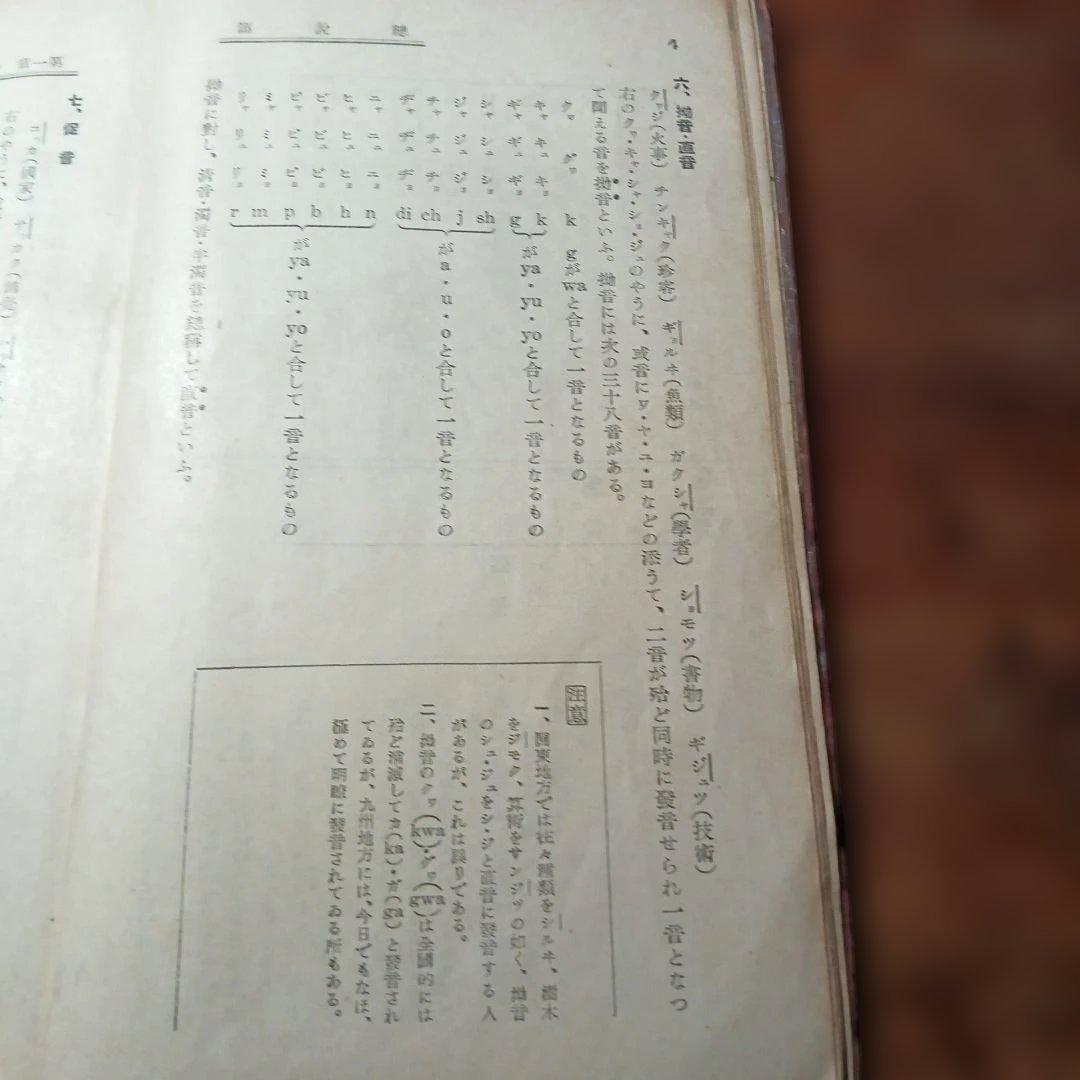 總説篇
4
六、拗音・直音
クヮジ(火事) チンキャク(珍客) ギョルヰ(魚類) ガクシャ(學者) ショモツ(書物) ギジュツ(技術)
右のクヮ・キャ・シャ・ショ・ジュのやうに、或音にワ・ヤ・ユ・ヨなどの添うて、二音が殆ど同時に發音せられ一音となつ
て聞える音を拗音といふ。拗音には次の三十八音がある。
クヮ グヮ k gがwaと合して一音となるもの
キャ キュ キョ k
ギャ ギュ ギョ g
がya・yu・yoと合して一音となるもの
シャ シュ ショ sh
ジャ ジュ ジョ j
チャ チュ チョ ch
ヂャ ヂュ ヂョ di
がa・u・oと合して一音となるもの
ニャ ニュ ニョ n
ヒャ ヒュ ヒョ h
ビャ ビュ ビョ b
ピャ ピュ ピョ p
ミャ ミュ ミョ m
リャ リュ リョ r
がya・yu・yoと合して一音となるもの
拗音に對し、淸音・濁音・半濁音を總稱して直音といふ。
注意
一、關東地方では往々種類をシルヰ、樹木
をジモク、算術をサンジツの如く、拗音
のシュ・ジュをシ・ジと直音に發音する人
があるが、これは誤りである。
二、拗音のクヮ(kwa)・グヮ(gwa)は全國的には
殆ど消滅してカ(ka)・ガ(ga)と發音され
てゐるが、九州地方には、今日でもなほ、
極めて明瞭に發音されてゐる所もある。
第一章
七、促音
コッカ(國家)
右のやうに、